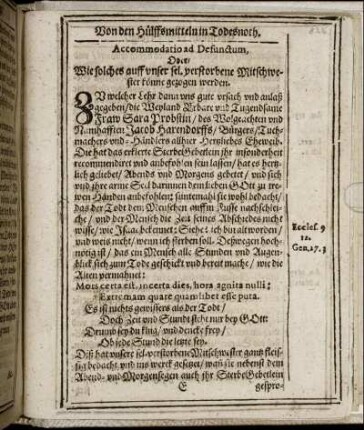 Von den Hülffsmitteln in Todesnoth.
Accommodatio ad Defunctum,
Oder/
Wie solches auff vnser sel. verstorbene Mitschwe-
ster könne gezogen werden.
ZV welcher Lehr dann vns gute vrsach vnd anlaß
gegeben/ die Weyland Erbare vnd Tugendsame
Fraw Sara Probstin/ des Wolgeachten vnd
Namhafften Jacob Harendorffs/ Bürgers/ Tuch-
machers vnd -Händlers allhier Hertzliebes Eheweib.
Die hat das erklerte SterbeGebetlin ihr insonderheit
recommendiret vnd anbefohlen sein lassen/ hat es hertz-
lich geliebet/ Abends vnd Morgens gebetet/ vnd sich
vnd ihre arme Seel darinnen dem lieben GOtt zu tre-
wen Händen anbefohlen; sintemahl sie wohl bedacht/
das der Todt dem Menschen auff dem Fusse nachschlei-
che/ vnd der Mensch die Zeit seines Abschiedes nicht
wisse/ wie Isaac bekennet: Siehe: ich bin alt worden/
vnd weis nicht/ wenn ich sterben soll. Deßwegen hoch-
nötig ist/ das ein Mensch alle Stunden vnd Augen-
blick sich zum Tode geschickt vnd bereit mache/ wie die
Alten vermahnet:
Eccles. 9
12.
Gen. 27. 3
Mors certa est, incerta dies, hora agnita nulli:
Extremam quare quamlibet esse puta.
Es ist nichts gewissers als der Todt/
Doch Zeit vnd Stund stehe nur bey GOtt:
Drumb sey du klug/ vnd dencke frey/
Ob jede Stund die letzte sey.
Diß hat vnsere sel. verstorbene Mitschwester gantz fleis-
sig bedacht vnd ins werck gesetzet/ maß sie nebenst dem
Abend- vnd Morgensegen auch ihr SterbeGebetlein
E
gespro-